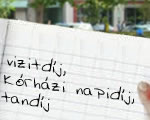 vizitdíj,
kórházi napidíj,
tandíj